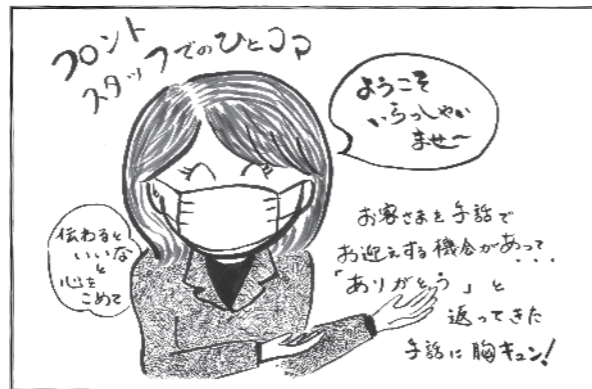 フロント
スタッフでのひとコマ
ようこそ
いらっしゃい
ませ〜
伝わると
いいな
と
心を
こめて
お客さまを手話で
お迎えする機会があって...
「ありがとう」と
返ってきた
手話に胸キュン!